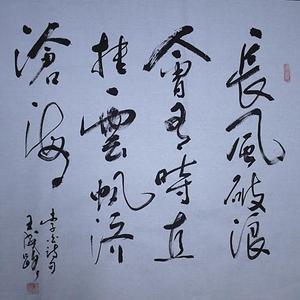 長風破浪
會有時直
挂雲帆济
滄海
李白詩句
王